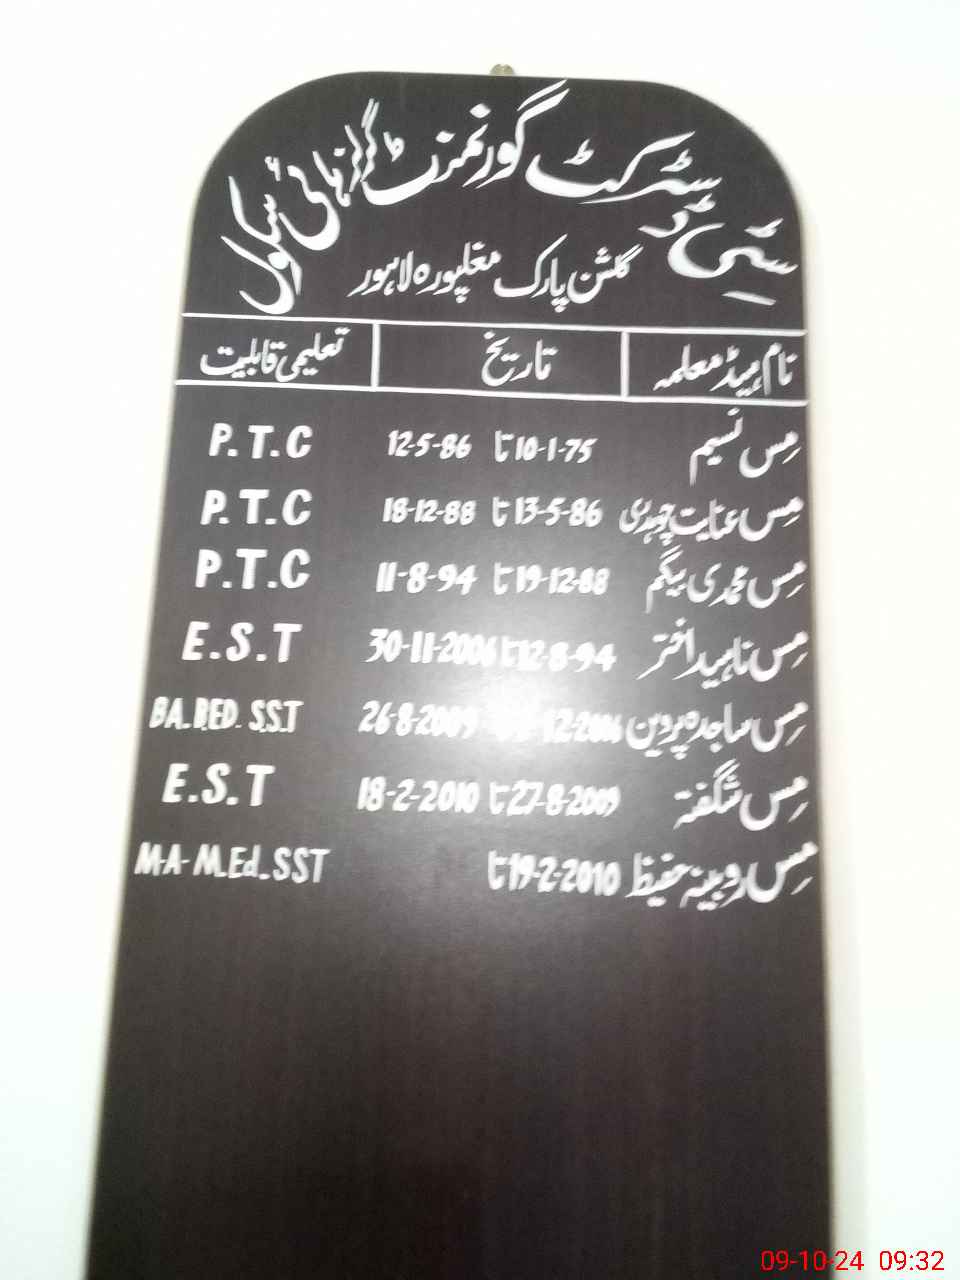 سٹی ڈسٹرکٹ گورنمنٹ گرلز ہائی سکول
گلشن پارک مغلپورہ لاہور
نام ہیڈ معلمہ تاریخ تعلیمی قابلیت
مِس نسیم 10-1-75 تا 12-5-86 P.T.C
مِس عنایت چوہدری 13-5-86 تا 18-12-88 P.T.C
مِس محمدی بیگم 19-12-88 تا 11-8-94 P.T.C
مِس ناہید اختر 12-8-94 تا 30-11-2006 E.S.T
مِس ساجدہ پروین 26-8-2009 BA.BED. S.S.T
مِس شگفتہ 27-8-2009 تا 18-2-2010 E.S.T
مِس روبینہ حفیظ 19-2-2010 تا M-A- M.Ed. SST
09-10-24 09:32